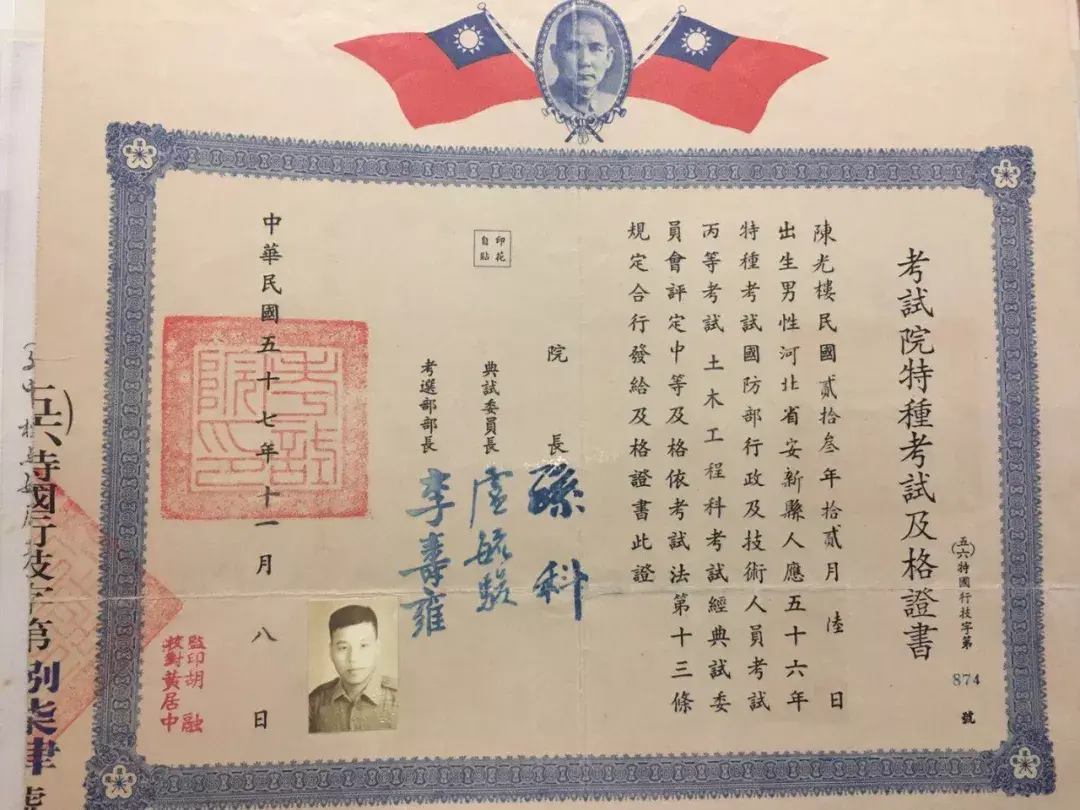 考試院特種考試及格證書
(五六)特國行技字第874號
陳光樓民國貳拾叁年拾貳月陸日
出生男性河北省安新縣人應五十六年
特種考試國防部行政及技術人員考試
丙等考試土木工程科考試經典試委
員會評定中等及格依考試法第十三條
規定合行發給及格證書此證
院長孫科
印花
自貼
典試委員長盧毓駿
考選部部長李壽雍
中華民國五十七年十一月八日
考試院印
監印胡融
校對黃居中
五六)特國行技字第捌柒肆號